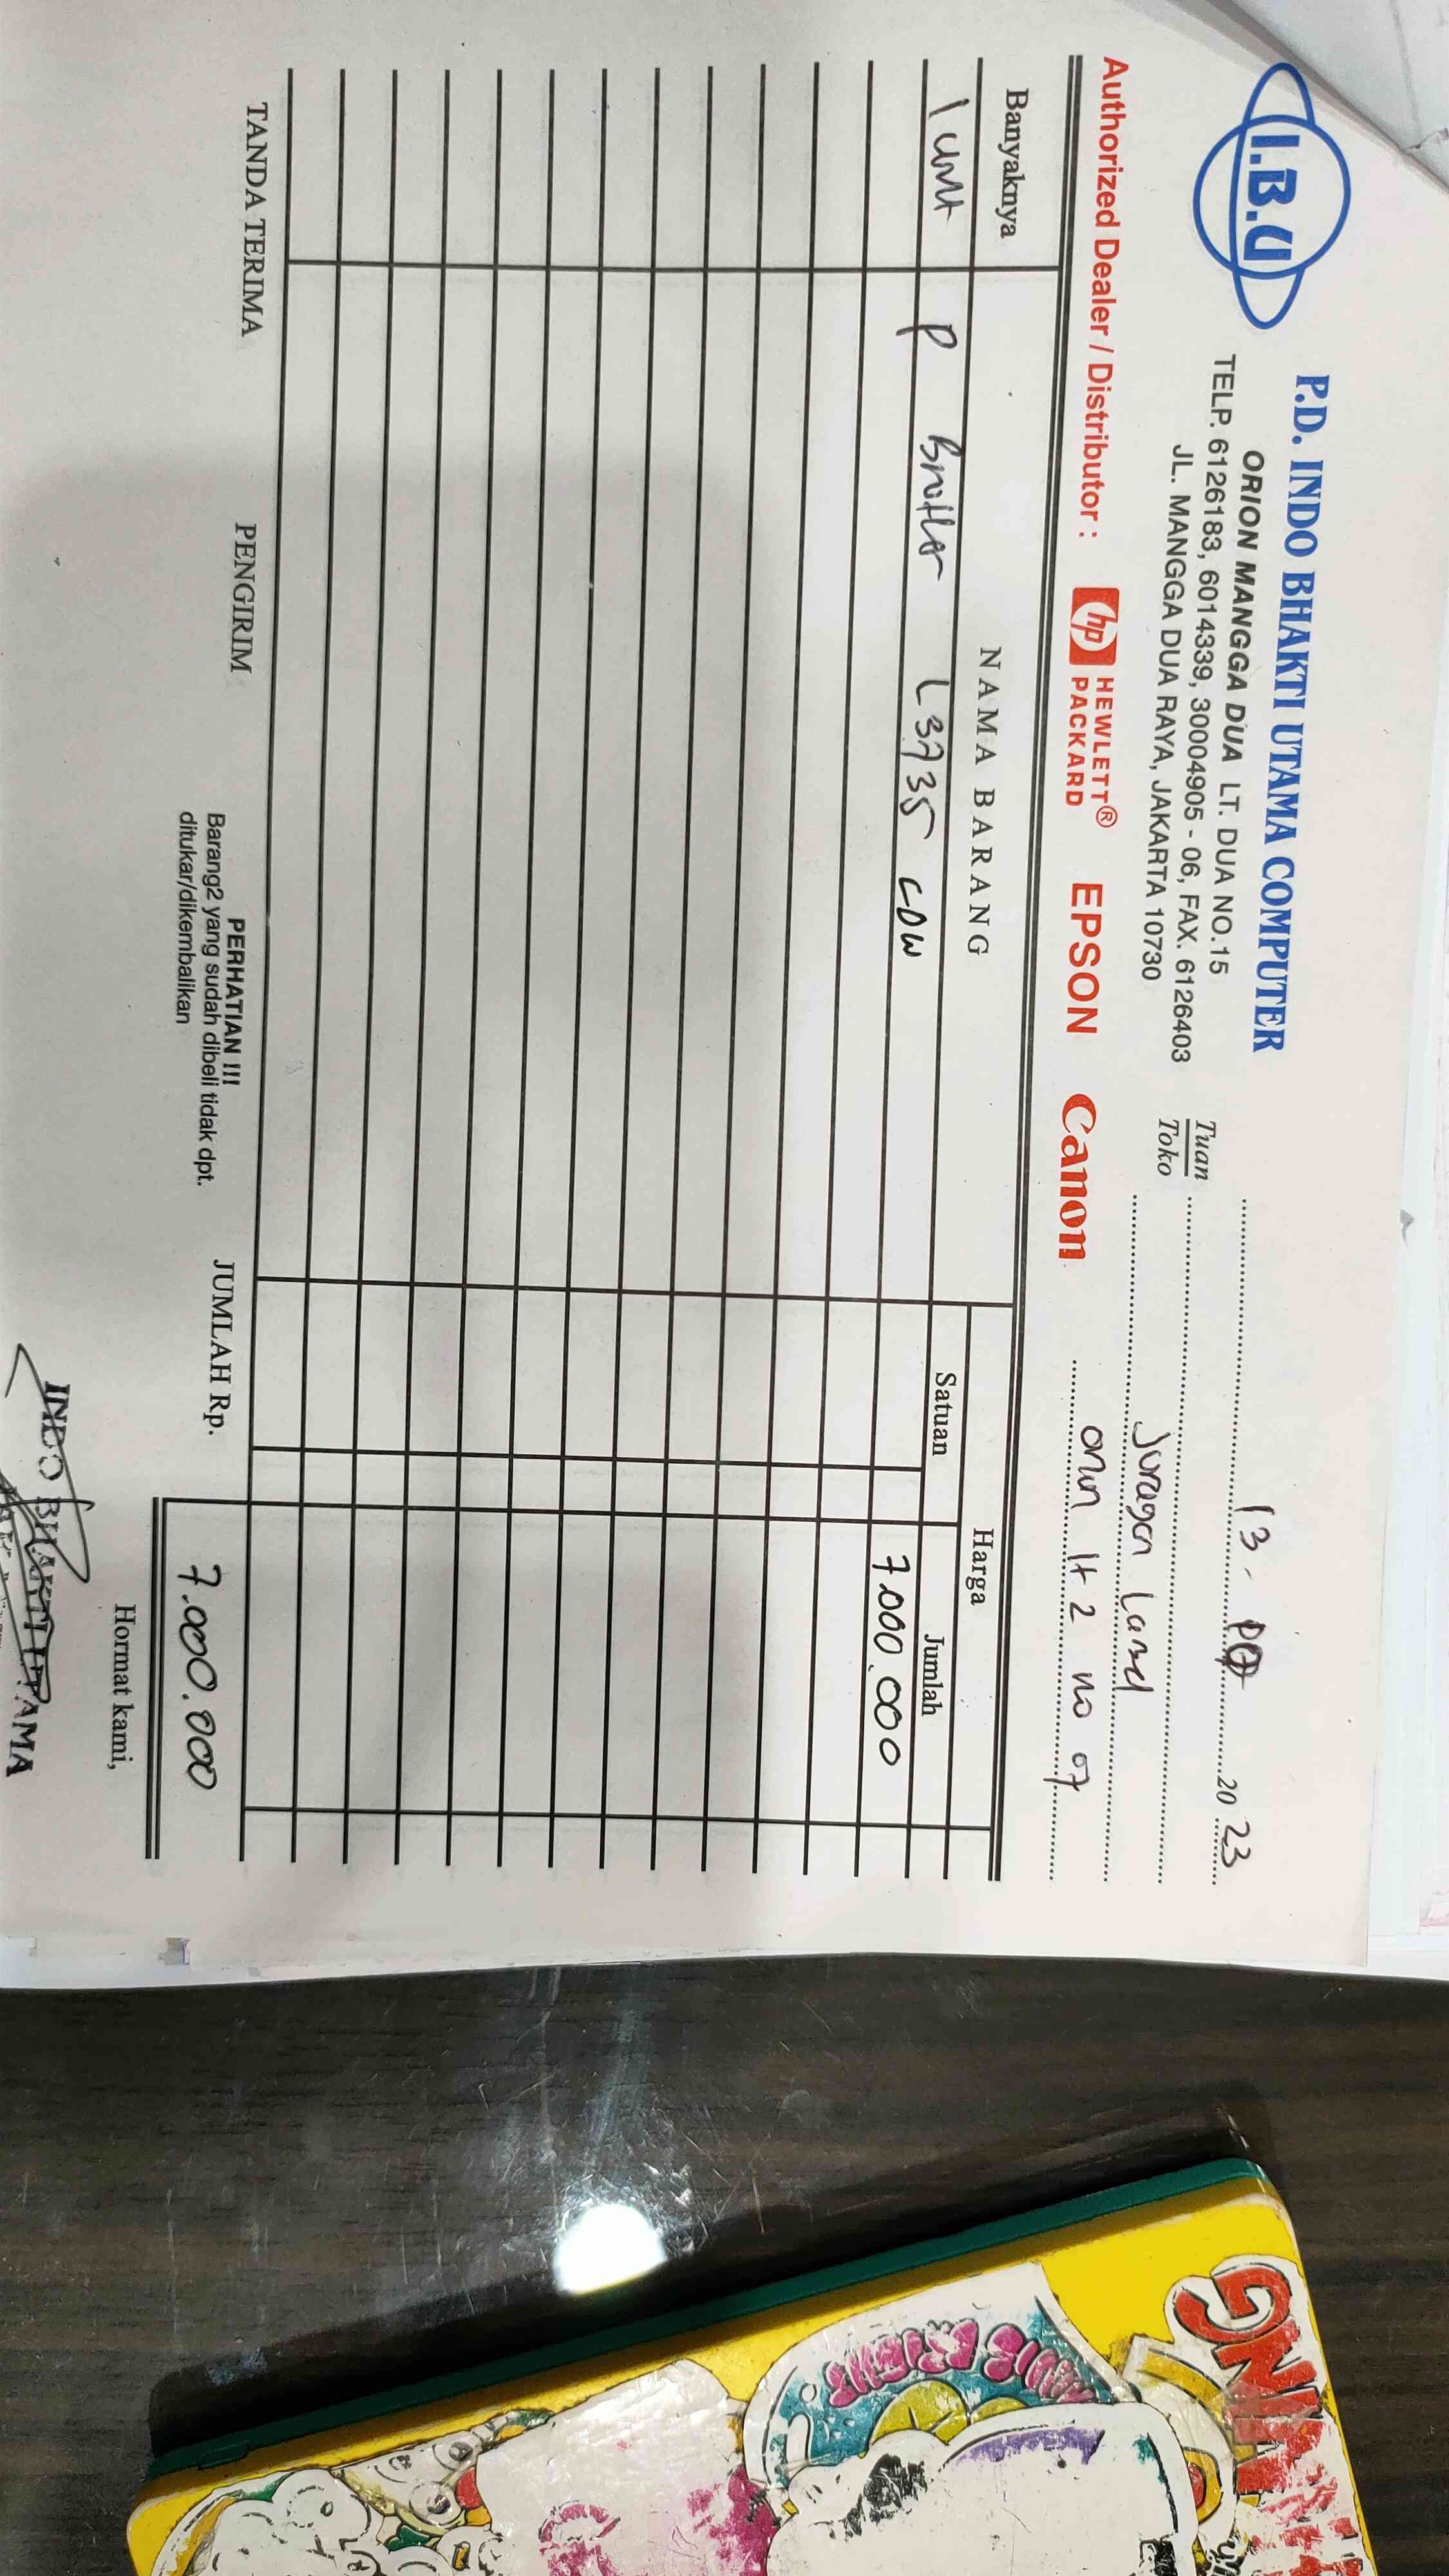 I.B.U
P.D. INDO BHAKTI UTAMA COMPUTER
ORION MANGGA DUA LT. DUA NO.15
TELP. 6126183, 6014339, 30004905 - 06, FAX. 6126403
JL. MANGGA DUA RAYA, JAKARTA 10730
13 - 2023
Tuan
Toko
Juragan Lased
orion lt 2 no 07
Authorized Dealer / Distributor : hp HEWLETT® PACKARD EPSON Canon
Banyaknya NAMA BARANG Harga
Satuan Jumlah
1 unit P Brother L3735 CDW 7.000.000
TANDA TERIMA PENGIRIM JUMLAH Rp. 7.000.000
PERHATIAN !!!
Barang2 yang sudah dibeli tidak dpt.
ditukar/dikembalikan
Hormat kami,
INDO BHAKTI UTAMA